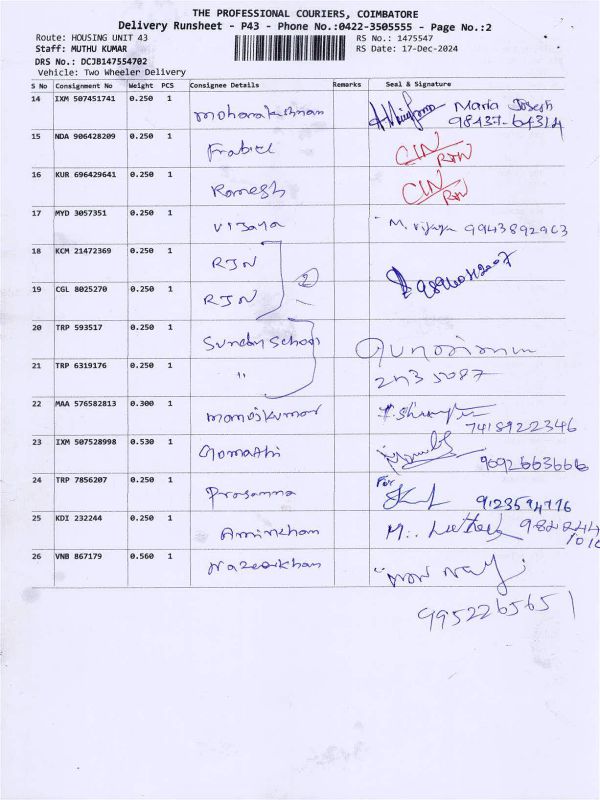 THE PROFESSIONAL COURIERS, COIMBATORE
Delivery Runsheet - P43 - Phone No.:0422-3505555 - Page No.:2
Route: HOUSING UNIT 43 RS No.: 1475547
Staff: MUTHU KUMAR RS Date: 17-Dec-2024
DRS No.: DCJB147554702
Vehicle: Two Wheeler Delivery
S No Consignment No Weight PCS Consignee Details Remarks Seal & Signature
14 IXM 507451741 0.250 1 Maria Joseph
98437-64314
15 NDA 906428209 0.250 1
16 KUR 696429641 0.250 1 Ramesh
17 MYD 3057351 0.250 1 Vijaya M. Vijaya 9943892963
18 KCM 21472369 0.250 1 RJN
19 CGL 8025270 0.250 1 RJN
20 TRP 593517 0.250 1 Sunday School
21 TRP 6319176 0.250 1 "
22 MAA 576582813 0.300 1 Manojkumar
7418922346
23 IXM 507528998 0.530 1 Gomathi
9092663666
24 TRP 7856207 0.250 1 Prasanna For
25 KDI 232244 0.250 1
26 VNB 867179 0.560 1 Nazeerkhan
9952265651